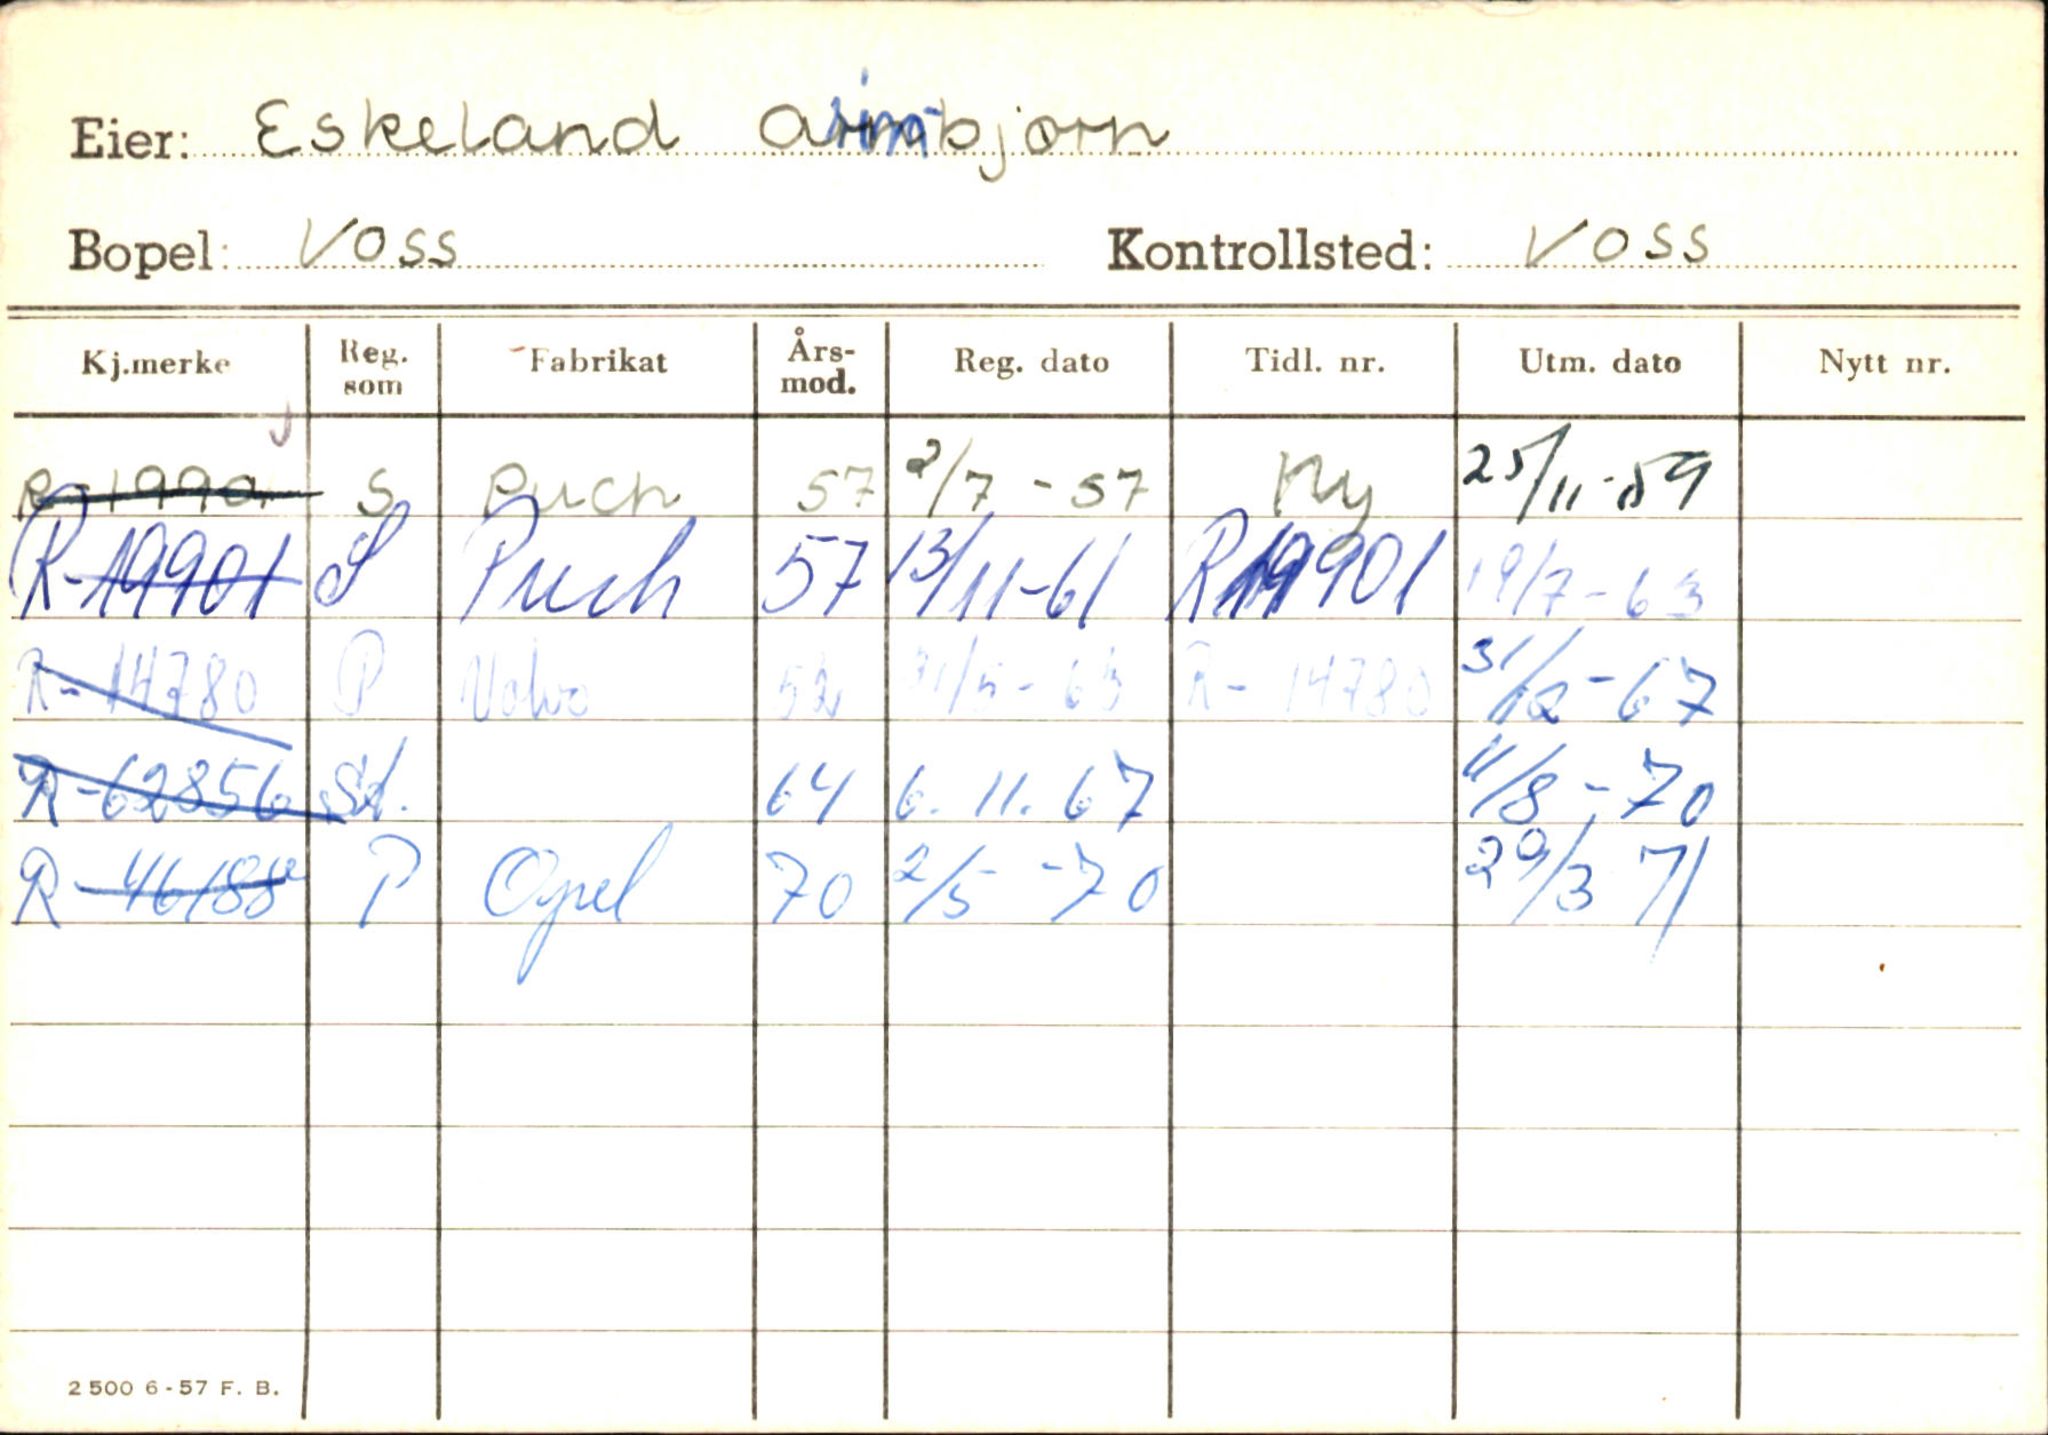 Eier: Eskeland Arinbjørn
Bopel: Voss Kontrollsted: Voss
Kj.merke Reg. som Fabrikat Års-mod. Reg. dato Tidl. nr. Utm. dato Nytt nr.
R-19901 S Puch 57 2/7-57 Ny 25/11-59
R-19901 S Puch 57 13/11-61 R19901 19/7-63
R-14780 P Volvo 52 31/5-63 R-14780 31/12-67
R-62856 St. 64 6.11.67 11/8-70
R-46188 P Opel 70 2/5-70 29/3 71
2500 6-57 F. B.